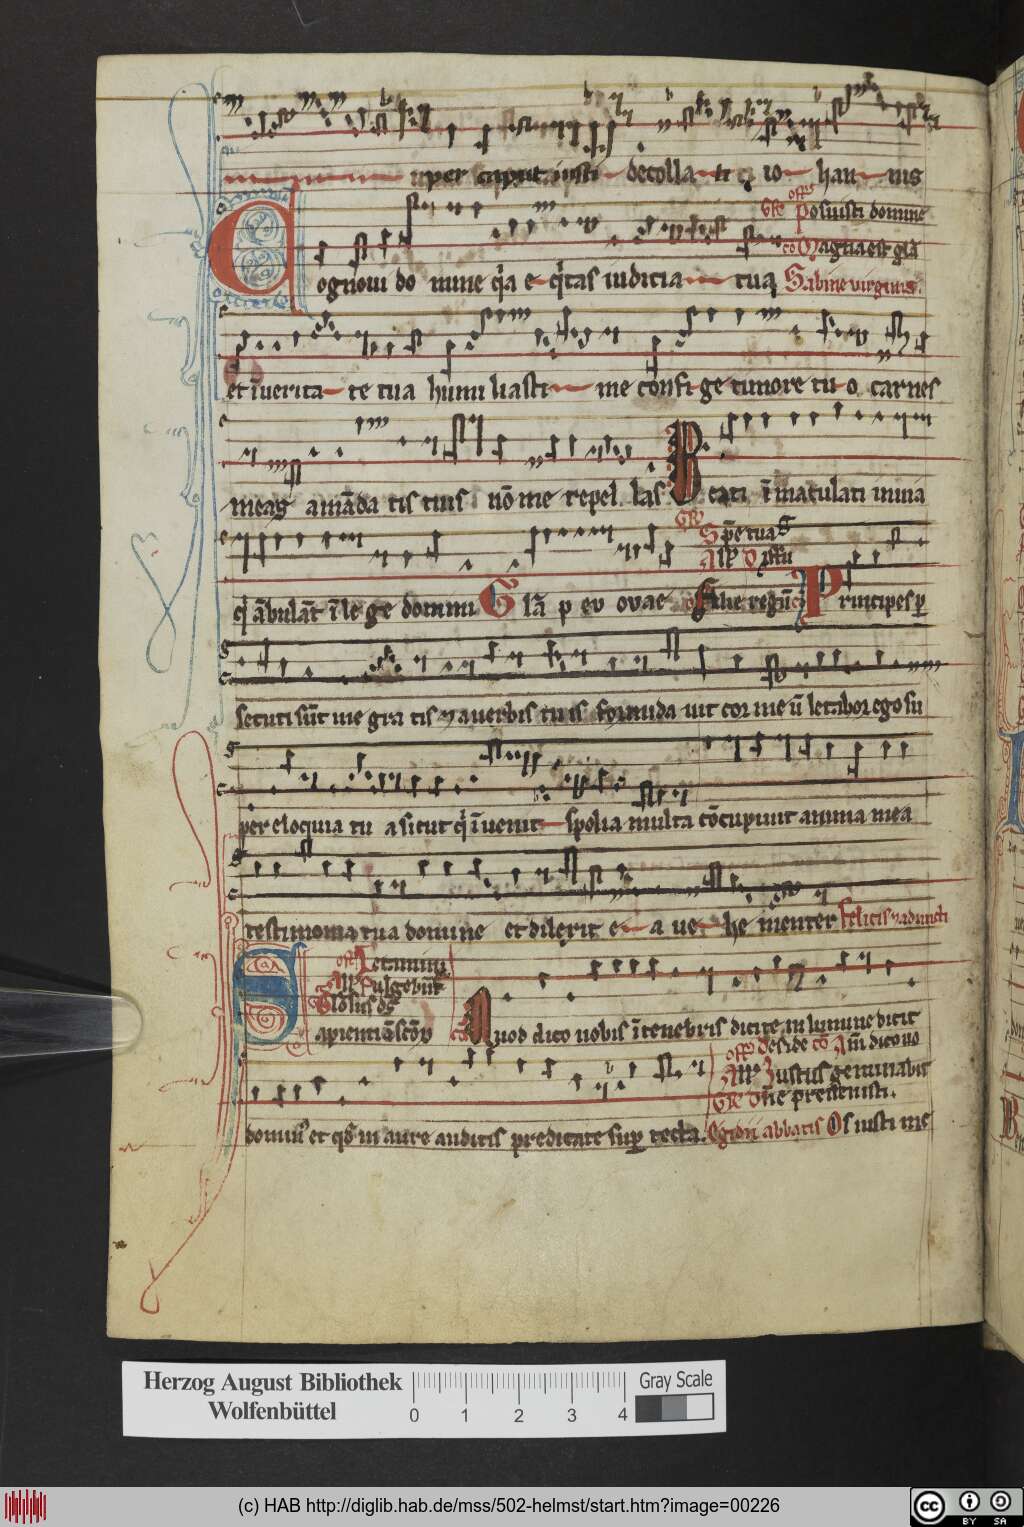 uper caput iusti decolla ti io han nis
Gr̄ offm̄ Posuisti domine
cō Magna est glā
Cognoui do mine q̄a e q̄tas iudicia tua Sabine virginis.
et ī uerita te tua humi liasti me cōnfi ge timore tu o carnes
meas a māda tis tuis nō me repel las Beati īmaculati inuia
Gr̄ Spē tua
All̄
q̄ ābulāt ī le ge domini Glā p eu ouae Filie regū cō Principes p
secuti sūt me gra tis ⁊ a uerbis tuis formida uit cor me ū letabor ego su
per eloquia tu a sicut q̄ īuenit spolia multa cōcupiuit anima mea
testimonia tua domine et dilexit e a ue he menter Felicis ⁊ adaucti
off Letamini
All̄ Fulgebūt
Gr̄ Gl̄osus ds̄
Sapienciā scō₄ cō Quod dico uobis ī tenebris dicite in lumine dicit
offm̄ Deside cō Am̄ dico uo
All̄ Iustus germinabit
Gr̄ Dn̄e preuenisti.
domin⁹ et qd̄ in aure auditis predicate sup̄ tecta. Egidii abbatis Os iusti me
Herzog August Bibliothek
Wolfenbüttel
0 1 2 3 4
Gray Scale
(c) HAB http://diglib.hab.de/mss/502-helmst/start.htm?image=00226
cc BY SA